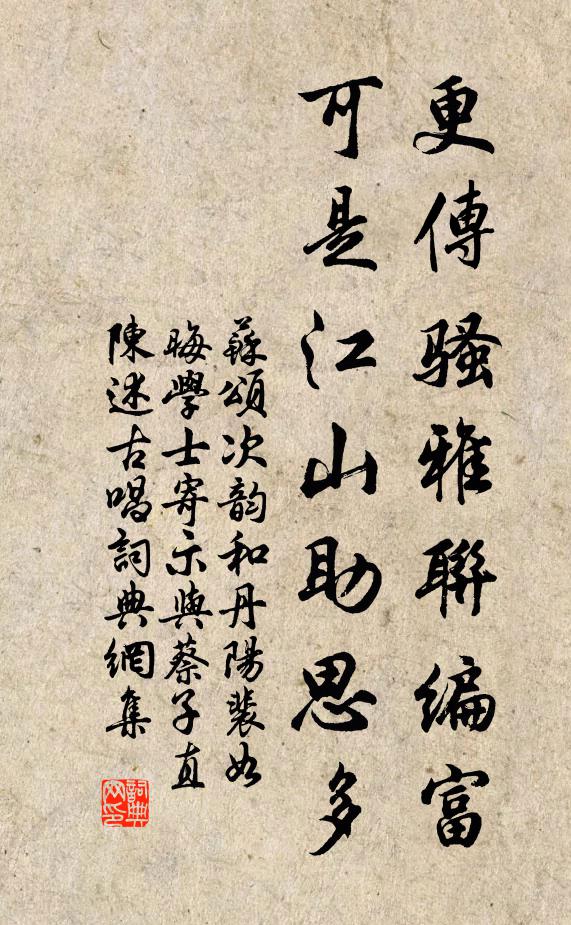 更傳騷雅聯編富
可是江山助思多
蘇頌次韵和丹陽裴如
晦學士寄示與蔡子直
陳述古唱詞典網集
詞典网印